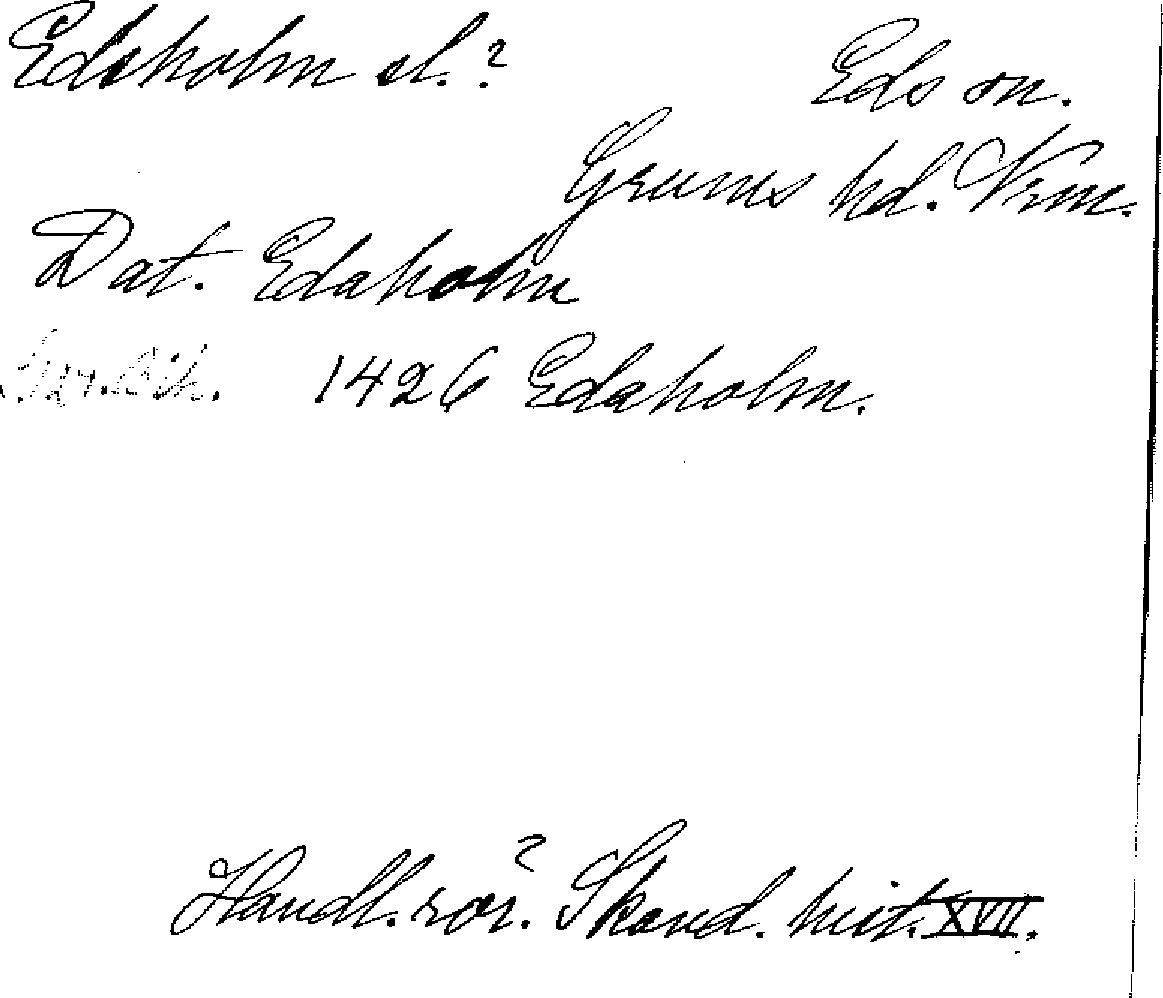 Edsholm sl.?
Eds sn.
Grums hd. Vrm.
Dat. Edaholm
1426 Edaholm.
Handl. rör. Skand. hist. XVII.